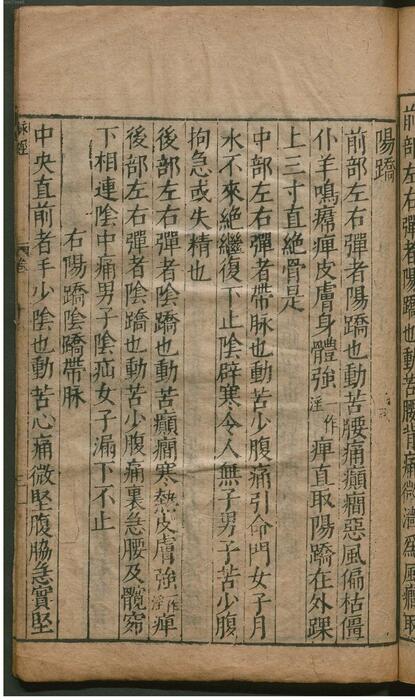 前部左右彈者陽蹻也動苦腰背痛微濇爲風癇取
陽蹻
前部左右彈者陽蹻也動苦腰痛癲癎惡風偏枯僵
仆羊鳴㿏痺皮膚身體強一作淫痺直取陽蹻在外踝
上三寸直絕骨是
中部左右彈者帶脉也動苦少腹痛引命門女子月
水不來絕繼復下止陰辟寒令人無子男子苦少腹
拘急或失精也
後部左右彈者陰蹻也動苦癲癎寒熱皮膚強一作淫痺
後部左右彈者陰蹻也動苦少腹痛裏急腰及髖窌
下相連陰中痛男子陰疝女子漏下不止
右陽蹻陰蹻帶脉
中央直前者手少陰也動苦心痛微堅腹脇急實堅
脉經
卷十